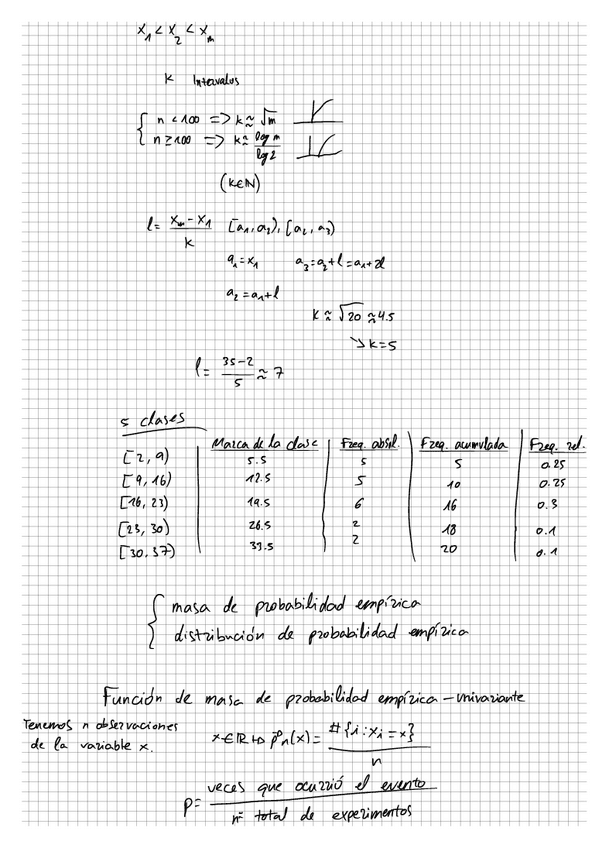 x₁ < x₂ < xₘ
k Intervalos
{ n < 100 => k ≈ √m
{ n ≥ 100 => k ≈ log m / log 2
(k∈N)
l = (xₘ - x₁) / k [a₁, a₂), [a₂, a₃)
a₁ = x₁ a₃ = a₂ + l = a₁ + 2l
a₂ = a₁ + l
k ≈ √20 ≈ 4.5
↘ k = 5
l = (35 - 2) / 5 ≈ 7
5 clases
Marca de la clase | Freq. absol. | Freq. acumulada | Freq. rel.
[2, 9) 5.5 5 5 0.25
[9, 16) 12.5 5 10 0.25
[16, 23) 19.5 6 16 0.3
[23, 30) 26.5 2 18 0.1
[30, 37) 33.5 2 20 0.1
{ masa de probabilidad empírica
{ distribución de probabilidad empírica
Función de masa de probabilidad empírica – univariante
Tenemos n observaciones
de la variable x.
x ∈ R ↦ p̂ₙ(x) = #{i : xᵢ = x} / n
p = veces que ocurrió el evento / nº total de experimentos